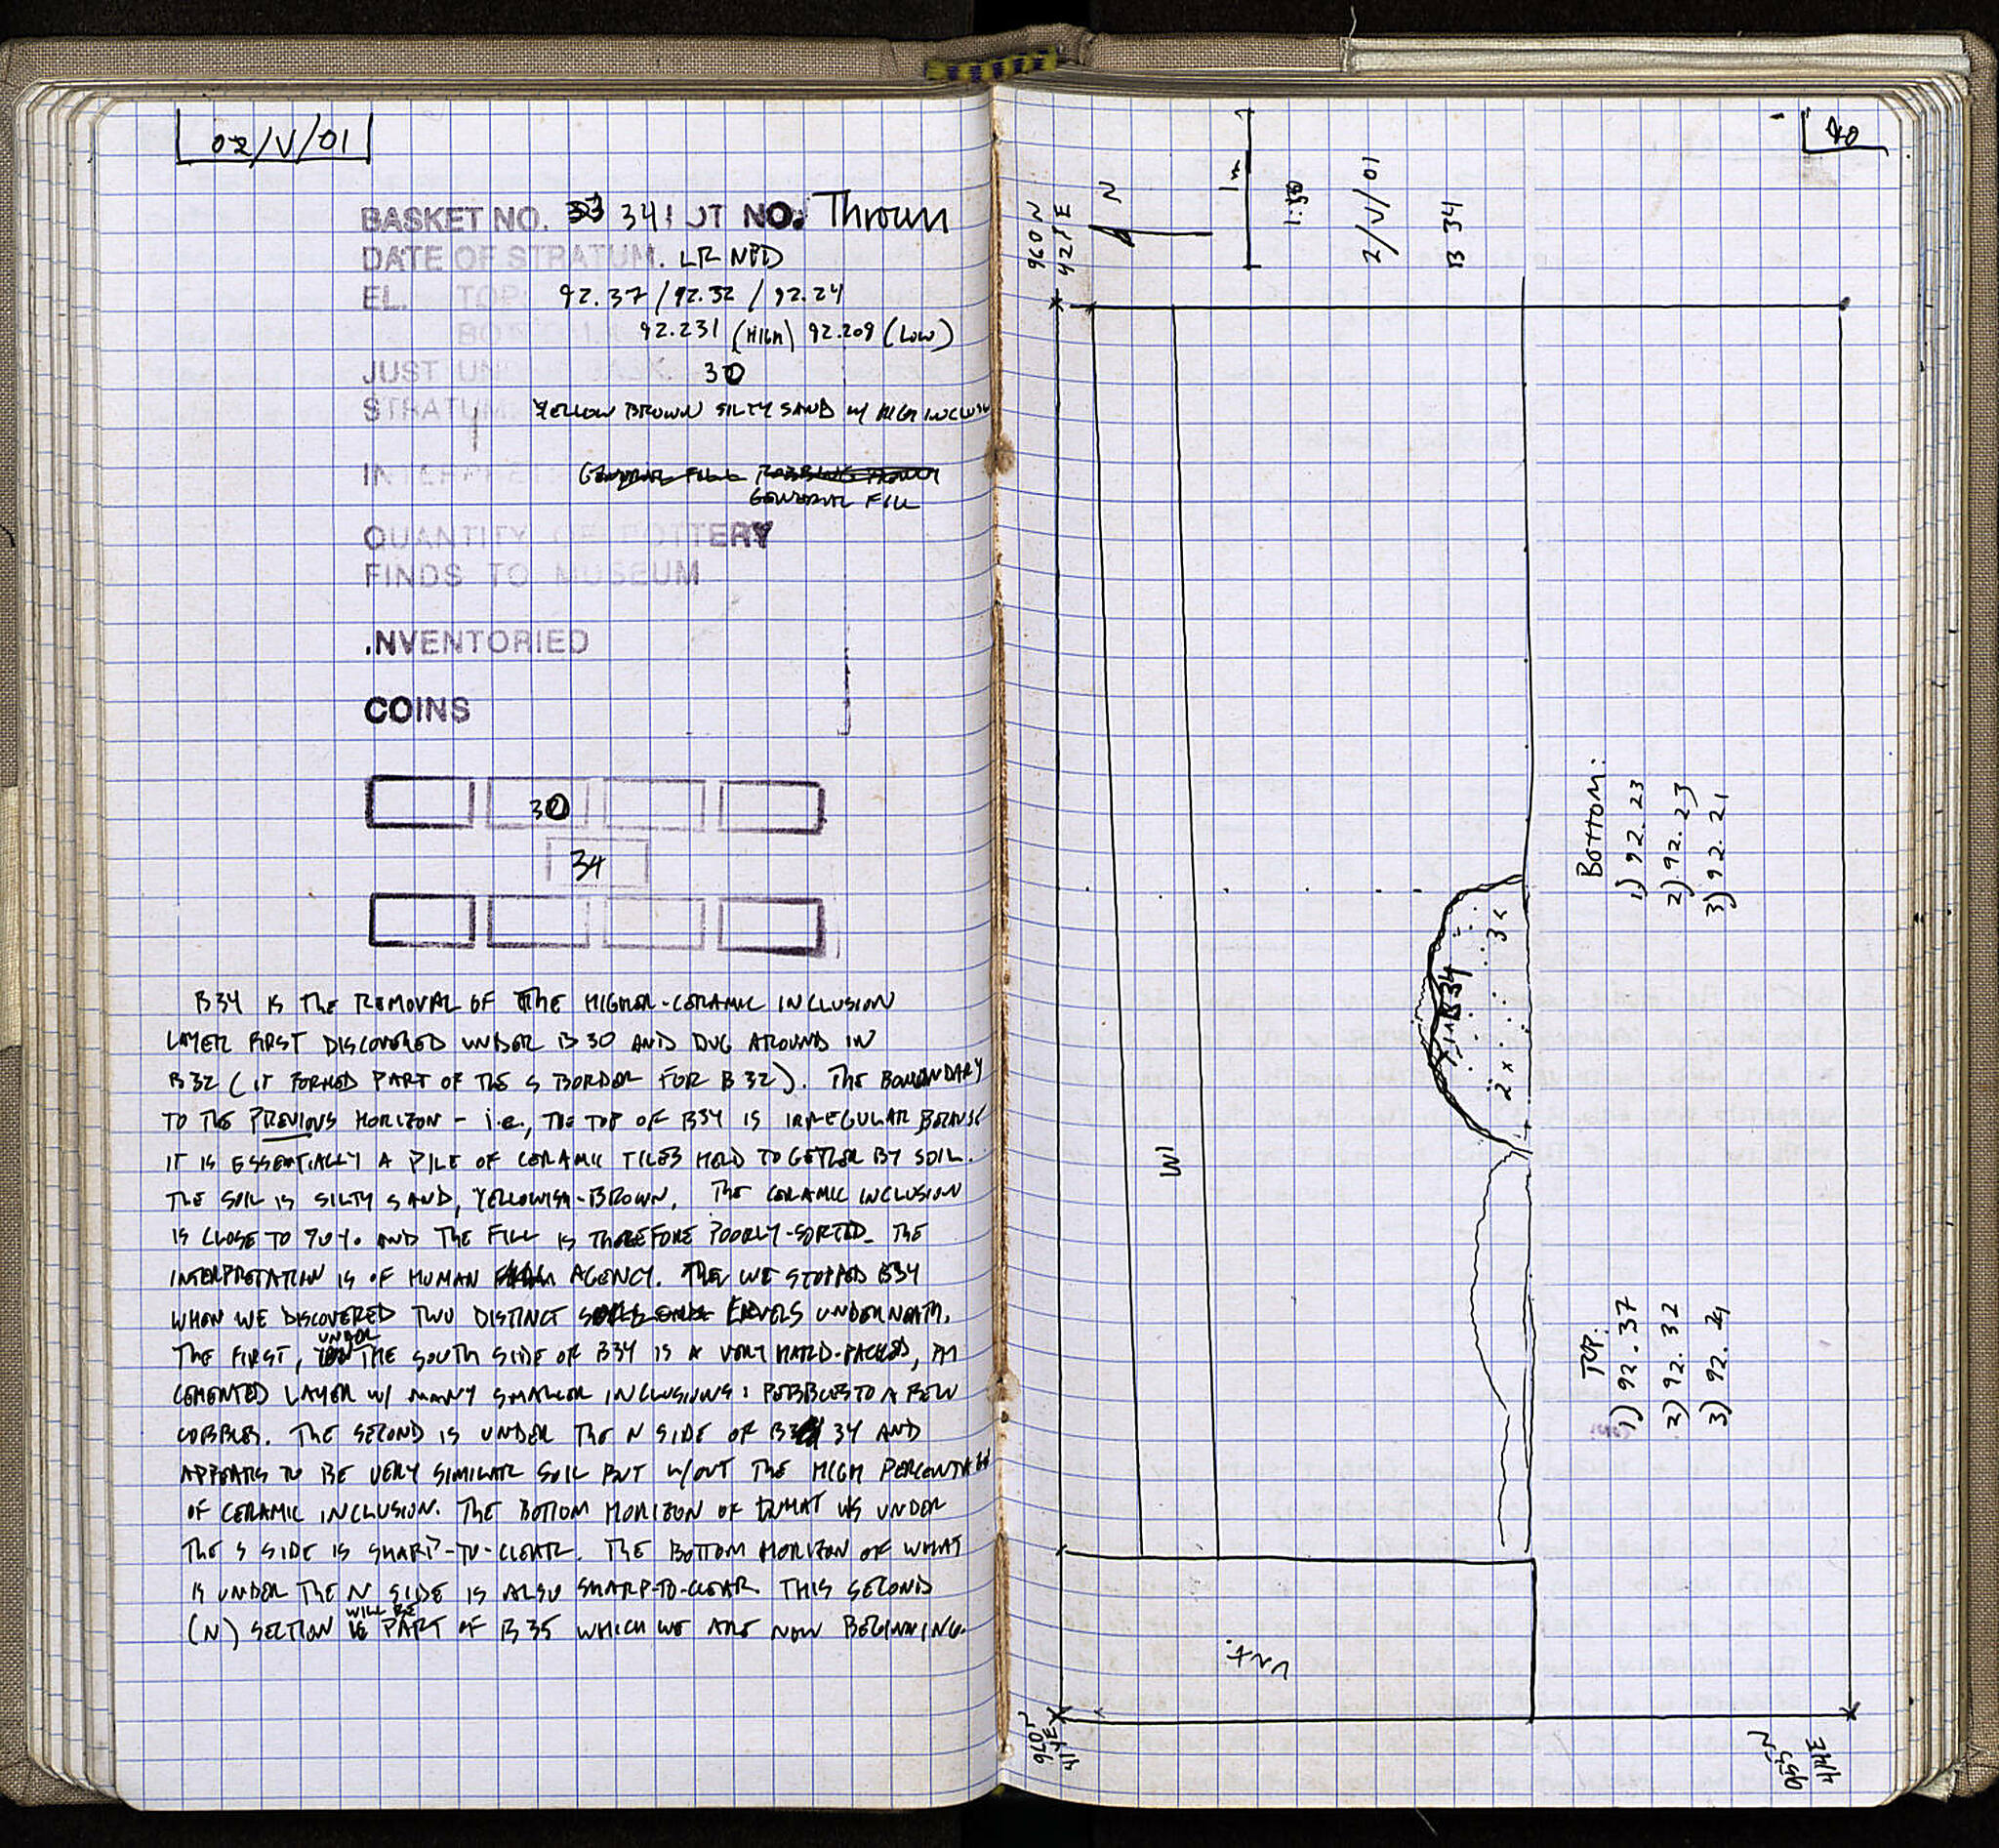 02/V/01
BASKET NO. 34 LOT NO. Thrown
DATE OF STRATUM. LR NPD
EL. TOP 92.37 / 92.32 / 92.24
92.231 (HIGH) 92.209 (LOW)
JUST UNDER BASK. 30
STRATUM: YELLOW BROWN SILTY SAND W/ HIGH INCLUSI
GENERAL FILL
GENERAL FILL
QUANTITY OF POTTERY
FINDS TO MUSEUM
.NVENTORIED
COINS
30
34
B34 IS THE REMOVAL OF THE HIGHER-CERAMIC INCLUSION
LAYER FIRST DISCOVERED UNDER B30 AND DUG AROUND IN
B32 (IT FORMED PART OF THE S BORDER FOR B32). THE BOUNDARY
TO THE PREVIOUS HORIZON - i.e., THE TOP OF B34 IS IRREGULAR BECAUSE
IT IS ESSENTIALLY A PILE OF CERAMIC TILES HELD TOGETHER BY SOIL.
THE SOIL IS SILTY SAND, YELLOWISH-BROWN. THE CERAMIC INCLUSION
IS CLOSE TO 90% AND THE FILL IS THEREFORE POORLY-SORTED. THE
INTERPRETATION IS OF HUMAN AGENCY. WE STOPPED B34
WHEN WE DISCOVERED TWO DISTINCT LEVELS UNDERNEATH.
THE FIRST, UNDER THE SOUTH SIDE OF B34 IS A VERY HARD-PACKED,
CEMENTED LAYER W/ MANY SMALLER INCLUSIONS: PEBBLES TO A FEW
COBBLES. THE SECOND IS UNDER THE N SIDE OF B 34 AND
APPEARS TO BE VERY SIMILAR SOIL BUT W/OUT THE HIGH PERCENTAGE
OF CERAMIC INCLUSION. THE BOTTOM HORIZON OF WHAT IS UNDER
THE S SIDE IS SHARP-TO-CLEAR. THE BOTTOM HORIZON OF WHAT
IS UNDER THE N SIDE IS ALSO SHARP-TO-CLEAR. THIS SECOND
(N) SECTION WILL BE PART OF B35 WHICH WE ARE NOW BEGINNING.
40
960 N
N
1m
2/V/01
B 34
BOTTOM:
1) 92.23
2) 92.23
3) 92.21
3x
X1 B34
2x
W
TOP:
1) 92.37
2) 92.32
Unx.